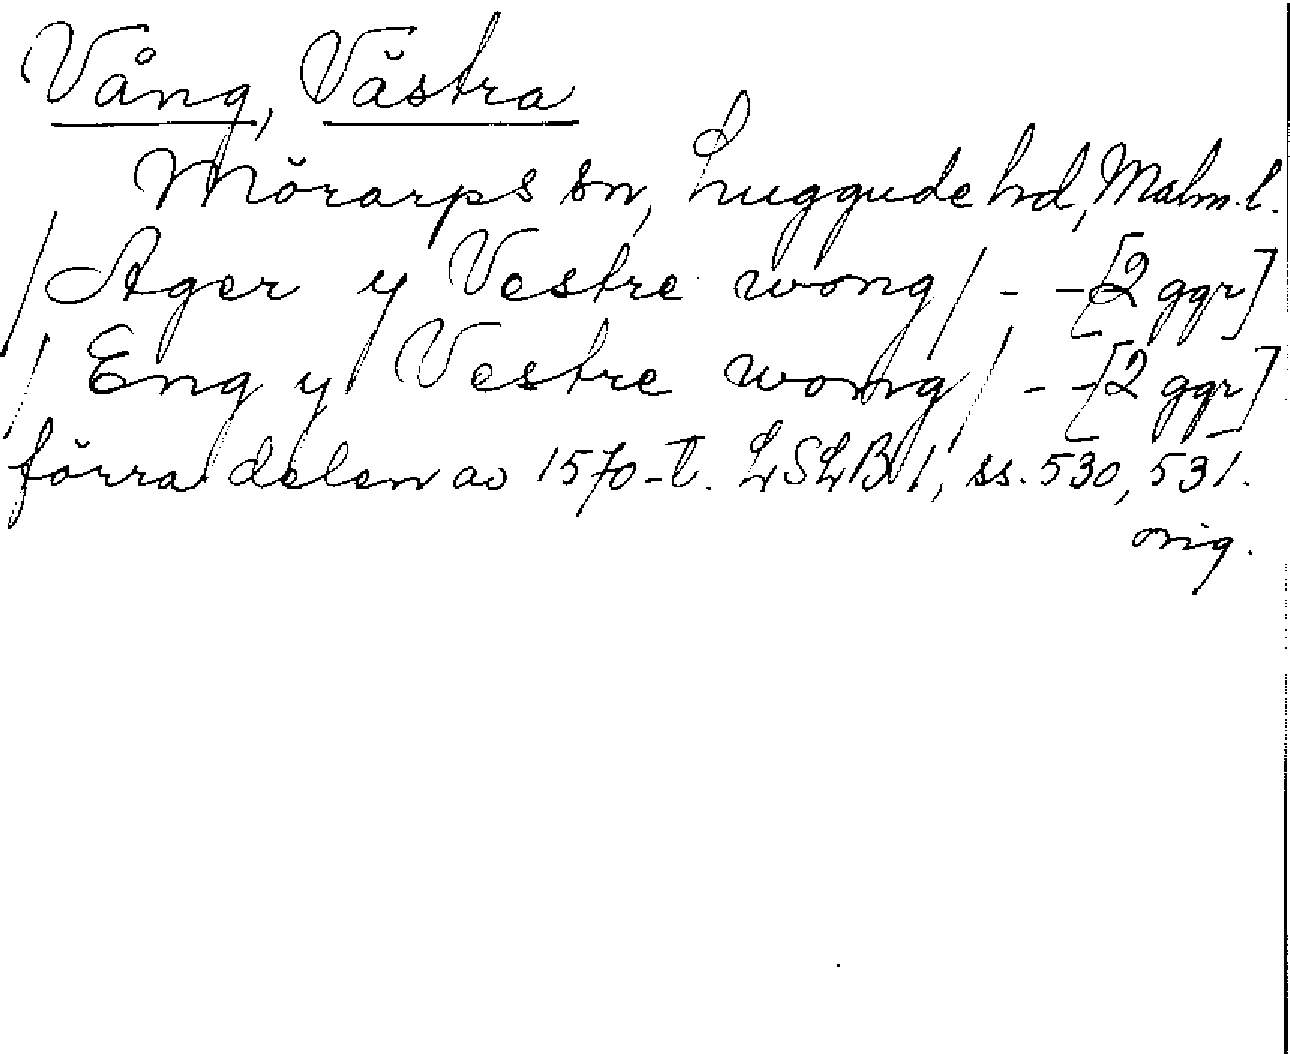 Vång, Västra
Mörarps sn, Luggude hd, Malm. l.
/Ager y Vestre wong/ - - [2 ggr]
/Eng y Vestre wong/ - - [2 ggr]
förra delen av 1570-t. LSLB 1, ss. 530, 531.
orig.